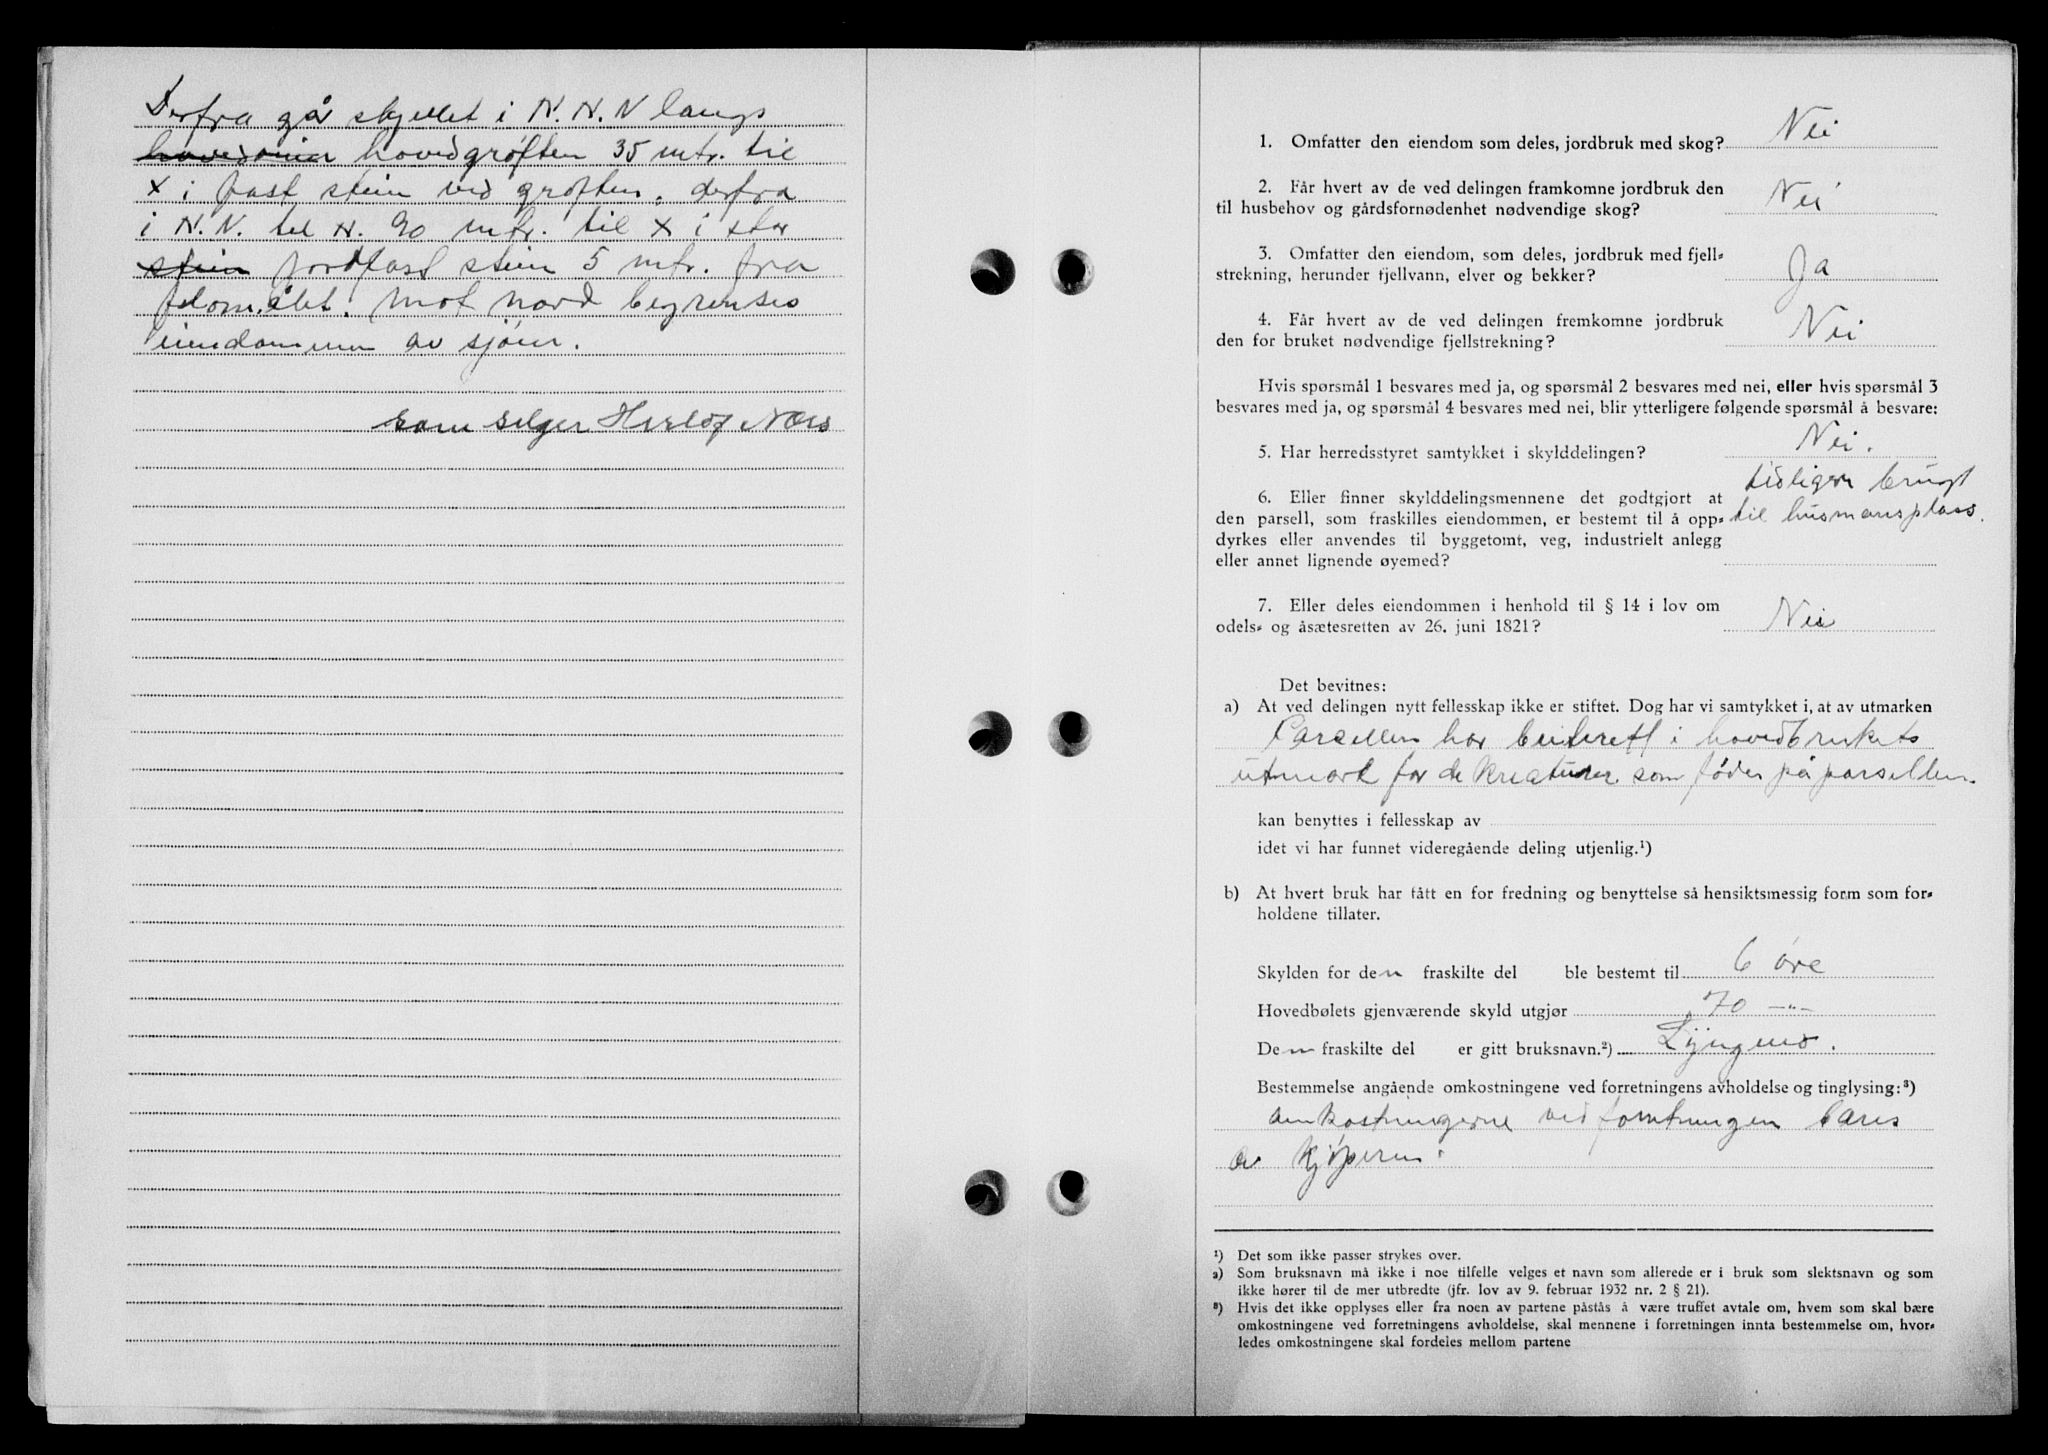 Derfra går skjellet i N.N.V langs
hovedgrøften 35 mtr. til
x i fast stein ved grøften, derfra
i N.V. til N. 90 mtr. til x i stor
stein jordfast stein 5 mtr. fra
flomålet. Mot nord begrenses
eiendommen av sjøen.
som selger Næss
1. Omfatter den eiendom som deles, jordbruk med skog? Nei
2. Får hvert av de ved delingen framkomne jordbruk den
til husbehov og gårdsfornødenhet nødvendige skog? Nei
3. Omfatter den eiendom, som deles, jordbruk med fjell-
strekning, herunder fjellvann, elver og bekker? Ja
4. Får hvert av de ved delingen fremkomne jordbruk
den for bruket nødvendige fjellstrekning? Nei
Hvis spørsmål 1 besvares med ja, og spørsmål 2 besvares med nei, eller hvis spørsmål 3
besvares med ja, og spørsmål 4 besvares med nei, blir ytterligere følgende spørsmål å besvare:
5. Har herredsstyret samtykket i skylddelingen? Nei.
6. Eller finner skylddelingsmennene det godtgjort at
den parsell, som fraskilles eiendommen, er bestemt til å opp-
dyrkes eller anvendes til byggetomt, veg, industrielt anlegg
eller annet lignende øyemed?
tidligere brugt
til husmansplass.
7. Eller deles eiendommen i henhold til § 14 i lov om
odels- og åsætesretten av 26. juni 1821? Nei
Det bevitnes:
a) At ved delingen nytt fellesskap ikke er stiftet. Dog har vi samtykket i, at av utmarken
Parsellen har beiterett i hovedbrukets
utmark for de kreaturer som føder på parsellen.
kan benyttes i fellesskap av
idet vi har funnet videregående deling utjenlig.¹)
b) At hvert bruk har fått en for fredning og benyttelse så hensiktsmessig form som for-
holdene tillater.
Skylden for den fraskilte del ble bestemt til 6 øre
Hovedbølets gjenværende skyld utgjør 70 -"-
Den fraskilte del er gitt bruksnavn.²) Lyngnes.
Bestemmelse angående omkostningene ved forretningens avholdelse og tinglysing:³)
omkostningerne ved forretningen bæres
av kjøperen.
¹) Det som ikke passer strykes over.
²) Som bruksnavn må ikke i noe tilfelle velges et navn som allerede er i bruk som slektsnavn og som
ikke hører til de mer utbredte (jfr. lov av 9. februar 1932 nr. 2 § 21).
³) Hvis det ikke opplyses eller fra noen av partene påstås å være truffet avtale om, hvem som skal bære
omkostningene ved forretningens avholdelse, skal mennene i forretningen innta bestemmelse om, hvor-
ledes omkostningene skal fordeles mellom partene